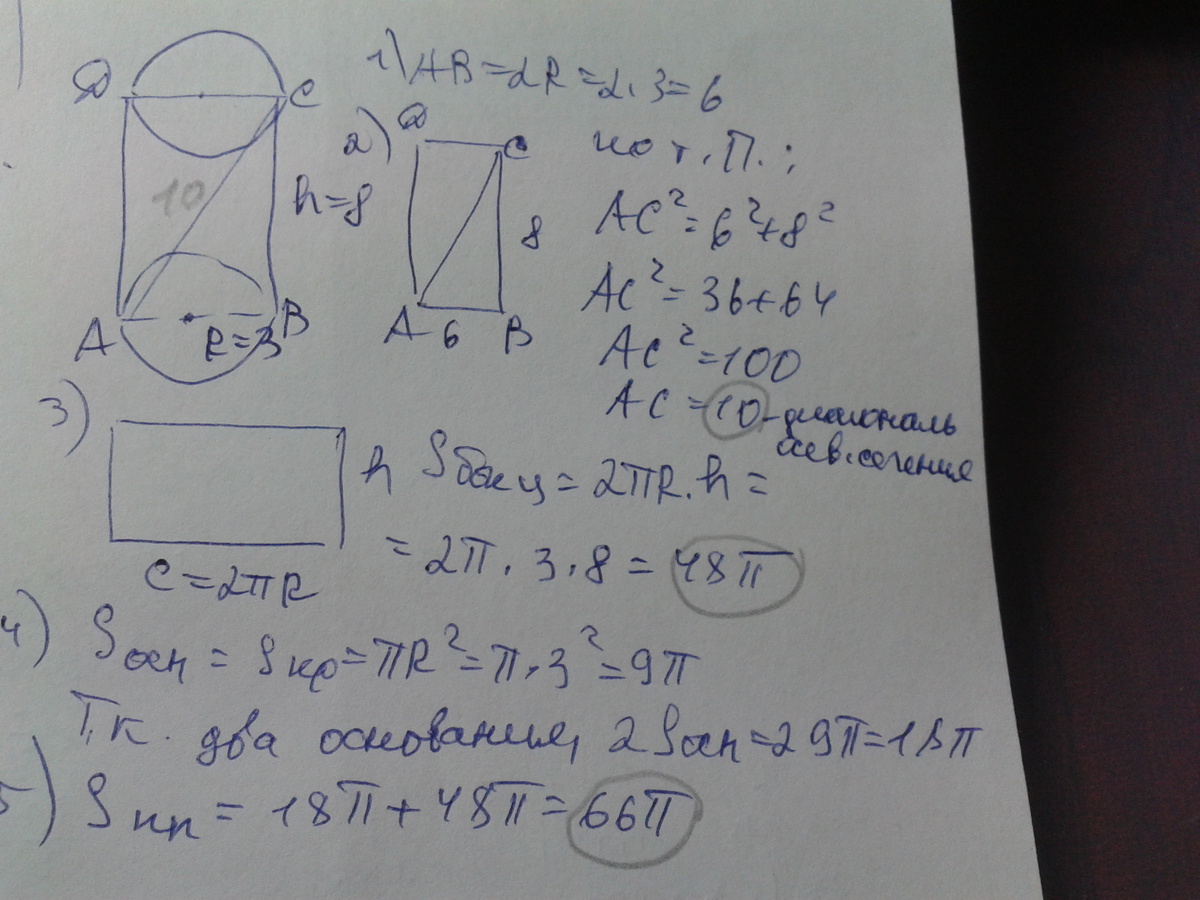 D
C
10
h=8
A
R=3
B
1) AB=2R=2.3=6
2)
D
C
8
A
6
B
по т. П. :
AC²=6²+8²
AC²=36+64
AC²=100
AC=10-диагональ
осев. сечения
3)
h
C=2πR
Sбок ц = 2πR.h =
= 2π . 3.8 = 48π
4) Sосн = Sкр=πR²=π.3²=9π
Т.к. два основания, 2Sосн=29π=18π
5) Sпп = 18π+48π=66π